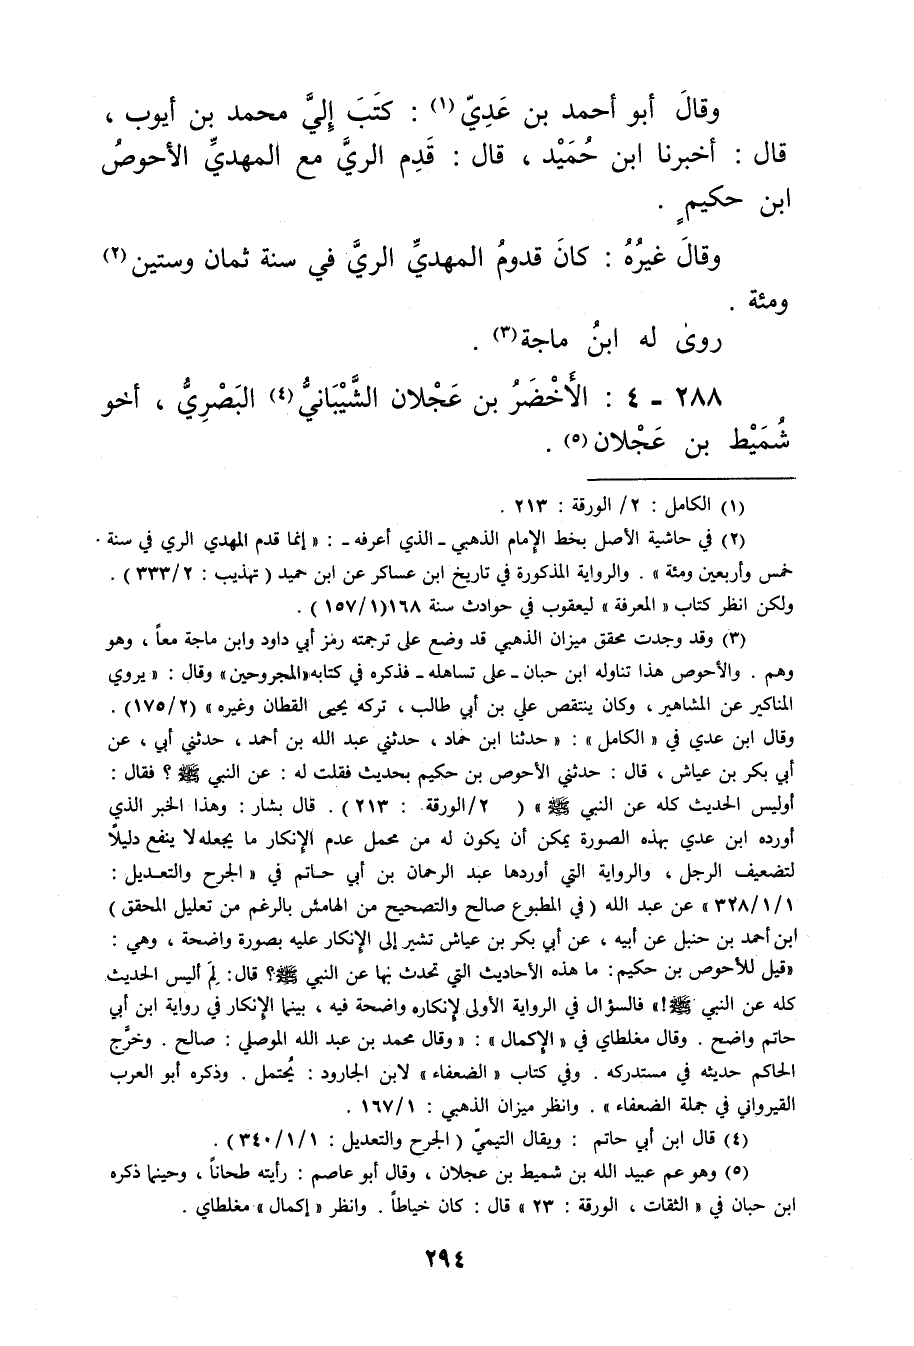 وقالَ أبو أحمد بن عَدِيّ (١) : كتَبَ إِليَّ محمد بن أيوب ،
قال : أخبرنا ابن حُمَيْد ، قال : قَدِم الريَّ مع المهديِّ الأحوصُ
ابن حكيمٍ .
وقالَ غيرُهُ : كانَ قدومُ المهديِّ الريَّ في سنة ثمان وستين (٢)
ومئة .
روىٰ له ابنُ ماجة (٣) .
٢٨٨ - ٤ : الأَخْضَرُ بن عَجْلان الشَّيْبَانيُّ (٤) البَصْرِيُّ ، أخو
شُمَيْط بن عَجْلان (٥) .
(١) الكامل : ٢/ الورقة : ٢١٣ .
(٢) في حاشية الأصل بخط الإمام الذهبي - الذي أعرفه - : « إنما قدم المهدي الري في سنة
خمس وأربعين ومئة » . والرواية المذكورة في تاريخ ابن عساكر عن ابن حميد ( تهذيب : ٢/ ٣٣٣ ) .
ولكن انظر كتاب « المعرفة » ليعقوب في حوادث سنة ١٦٨ (١/ ١٥٧ ) .
(٣) وقد وجدت محقق ميزان الذهبي قد وضع على ترجمته رمز أبي داود وابن ماجة معاً ، وهو
وهم . والأحوص هذا تناوله ابن حبان - على تساهله - فذكره في كتابه «المجروحين» وقال : « يروي
المناكير عن المشاهير ، وكان ينتقص علي بن أبي طالب ، تركه يحيى القطان وغيره » (٢/ ١٧٥) .
وقال ابن عدي في « الكامل » : « حدثنا ابن حماد ، حدثني عبد الله بن أحمد ، حدثني أبي ، عن
أبي بكر بن عياش ، قال : حدثني الأحوص بن حكيم بحديث فقلت له : عن النبي ﷺ ؟ فقال :
أوليس الحديث كله عن النبي ﷺ » ( ٢/الورقة : ٢١٣ ) . قال بشار : وهذا الخبر الذي
أورده ابن عدي بهذه الصورة يمكن أن يكون له من محمل عدم الإنكار ما يجعله لا ينفع دليلاً
لتضعيف الرجل ، والرواية التي أوردها عبد الرحمان بن أبي حاتم في « الجرح والتعديل :
١/ ١/ ٣٢٨ » عن عبد الله ( في المطبوع صالح والتصحيح من الهامش بالرغم من تعليل المحقق )
ابن أحمد بن حنبل عن أبيه ، عن أبي بكر بن عياش تشير إلى الإنكار عليه بصورة واضحة ، وهي :
«قيل للأحوص بن حكيم: ما هذه الأحاديث التي تحدث بها عن النبي ﷺ؟ قال: لِمَ أليس الحديث
كله عن النبي ﷺ!» فالسؤال في الرواية الأولى لإنكاره واضحة فيه ، بينما الإنكار في رواية ابن أبي
حاتم واضح . وقال مغلطاي في « الإكمال » : « وقال محمد بن عبد الله الموصلي : صالح . وخرَّج
الحاكم حديثه في مستدركه . وفي كتاب « الضعفاء » لابن الجارود : يُحتمل . وذكره أبو العرب
القيرواني في جملة الضعفاء » . وانظر ميزان الذهبي : ١/ ١٦٧ .
(٤) قال ابن أبي حاتم : ويقال التيميّ ( الجرح والتعديل : ١/ ١/ ٣٤٠) .
(٥) وهو عم عبيد الله بن شميط بن عجلان ، وقال أبو عاصم : رأيته طحاناً ، وحينما ذكره
ابن حبان في « الثقات ، الورقة : ٢٣ » قال : كان خياطاً . وانظر « إكمال » مغلطاي .
٢٩٤